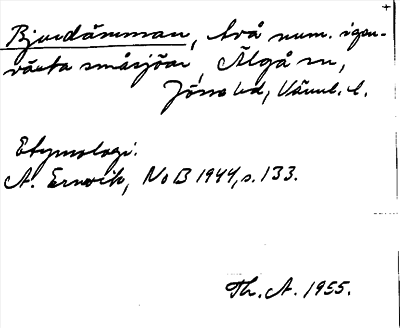 Bjurdämman, två num. igen-
växta småsjöar, Älgå sn,
Jösse hd, Värml. l.
Etymologi:
A. Ernvik, NoB 1944, s. 133.
Th. A. 1955.